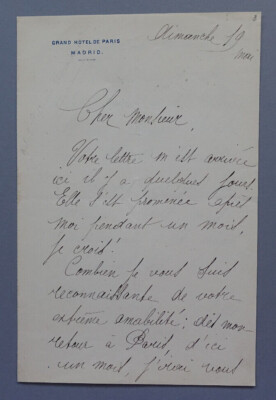 GRAND HOTEL DE PARIS
MADRID.
Dimanche 19
mai
Cher Monsieur,
Votre lettre m'est arrivée
ici il y a quelques jours.
Elle s'est promenée après
moi pendant un mois,
je crois!
Combien je vous suis
reconnaissante de votre
extrême amabilité; dès mon
retour à Paris, d'ici
un mois, j'irai vous